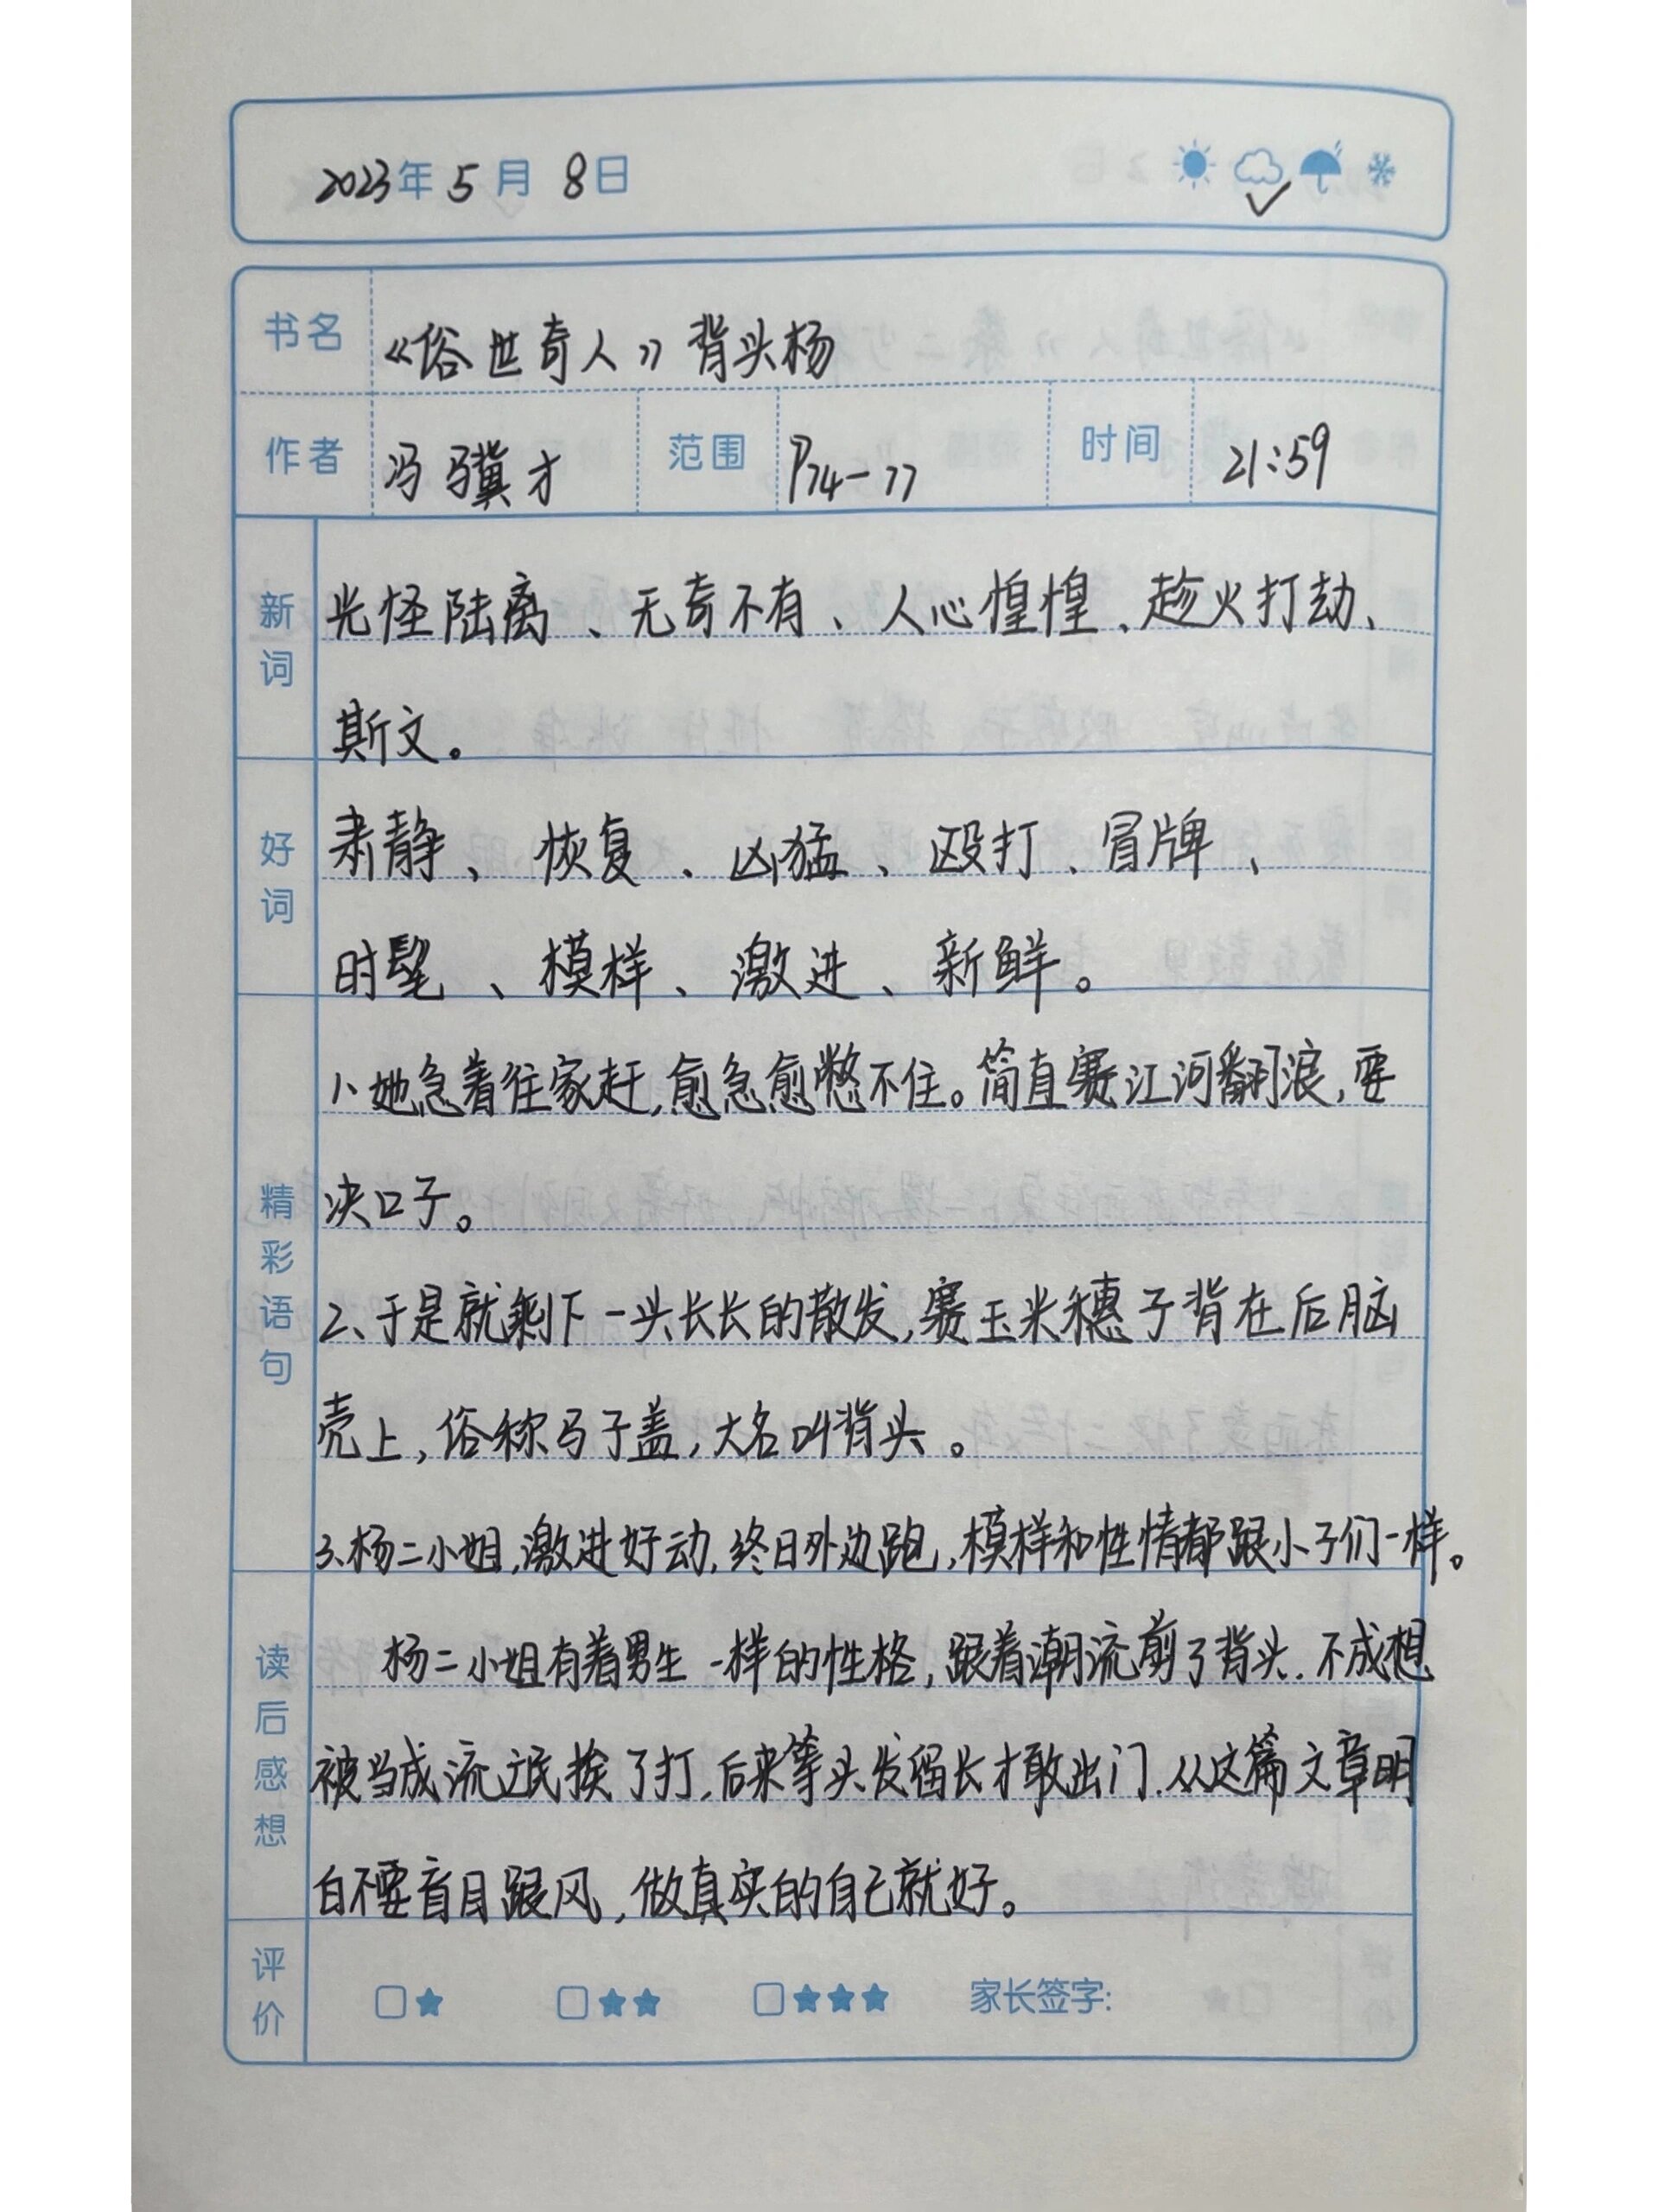 2023年5月8日
书名 《俗世奇人》背头杨
作者 冯骥才 范围 P74-77 时间 21:59
新词 光怪陆离、无奇不有、人心惶惶、趁火打劫、
斯文。
好词 肃静、恢复、凶猛、殴打、冒牌、
时髦、模样、激进、新鲜。
精彩语句 1、她急着往家赶,愈急愈憋不住。简直赛江河翻浪,要
决口子。
2、于是就剩下一头长长的散发,赛玉米穗子背在后脑
壳上,俗称马子盖,大名叫背头。
3、杨二小姐,激进好动,终日外边跑,模样和性情都跟小子们一样。
读后感想 杨二小姐有着男生一样的性格,跟着潮流剪了背头.不成想
被当成流氓挨了打.后来等头发留长才敢出门.从这篇文章明
白不要盲目跟风,做真实的自己就好。
评价 □★ □★★ □★★★ 家长签字: